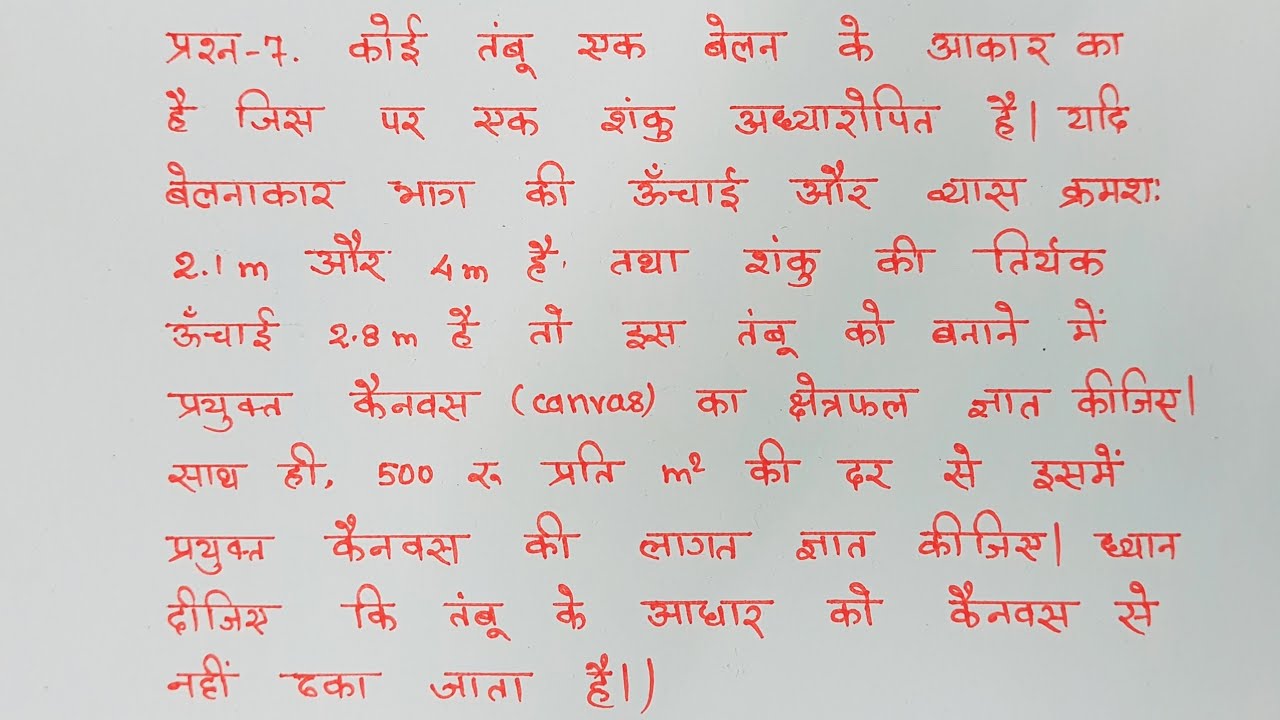 प्रश्न-7. कोई तंबू एक बेलन के आकार का
है जिस पर एक शंकु अध्यारोपित है। यदि
बेलनाकार भाग की ऊँचाई और व्यास क्रमशः
2.1 m और 4 m है, तथा शंकु की तिर्यक
ऊँचाई 2.8 m है तो इस तंबू को बनाने में
प्रयुक्त कैनवस (canvas) का क्षेत्रफल ज्ञात कीजिए।
साथ ही, 500 रु प्रति m² की दर से इसमें
प्रयुक्त कैनवस की लागत ज्ञात कीजिए। ध्यान
दीजिए कि तंबू के आधार को कैनवस से
नहीं ढका जाता है।)